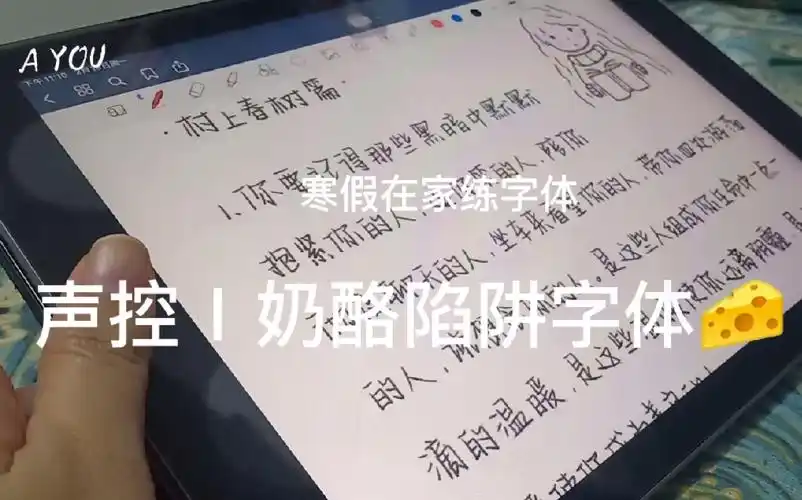 A YOU
下午11:10
·村上春树篇·
1、你要记得那些黑暗中默默
寒假在家练字体
抱紧你的人,的人,陪你
的人,坐车来看望你的人,带你四处游荡
声控|奶酪陷阱字体🧀
的人,的人。是这些人组成你生命中一点一
滴的温暖,是这些你远离阴霾,是